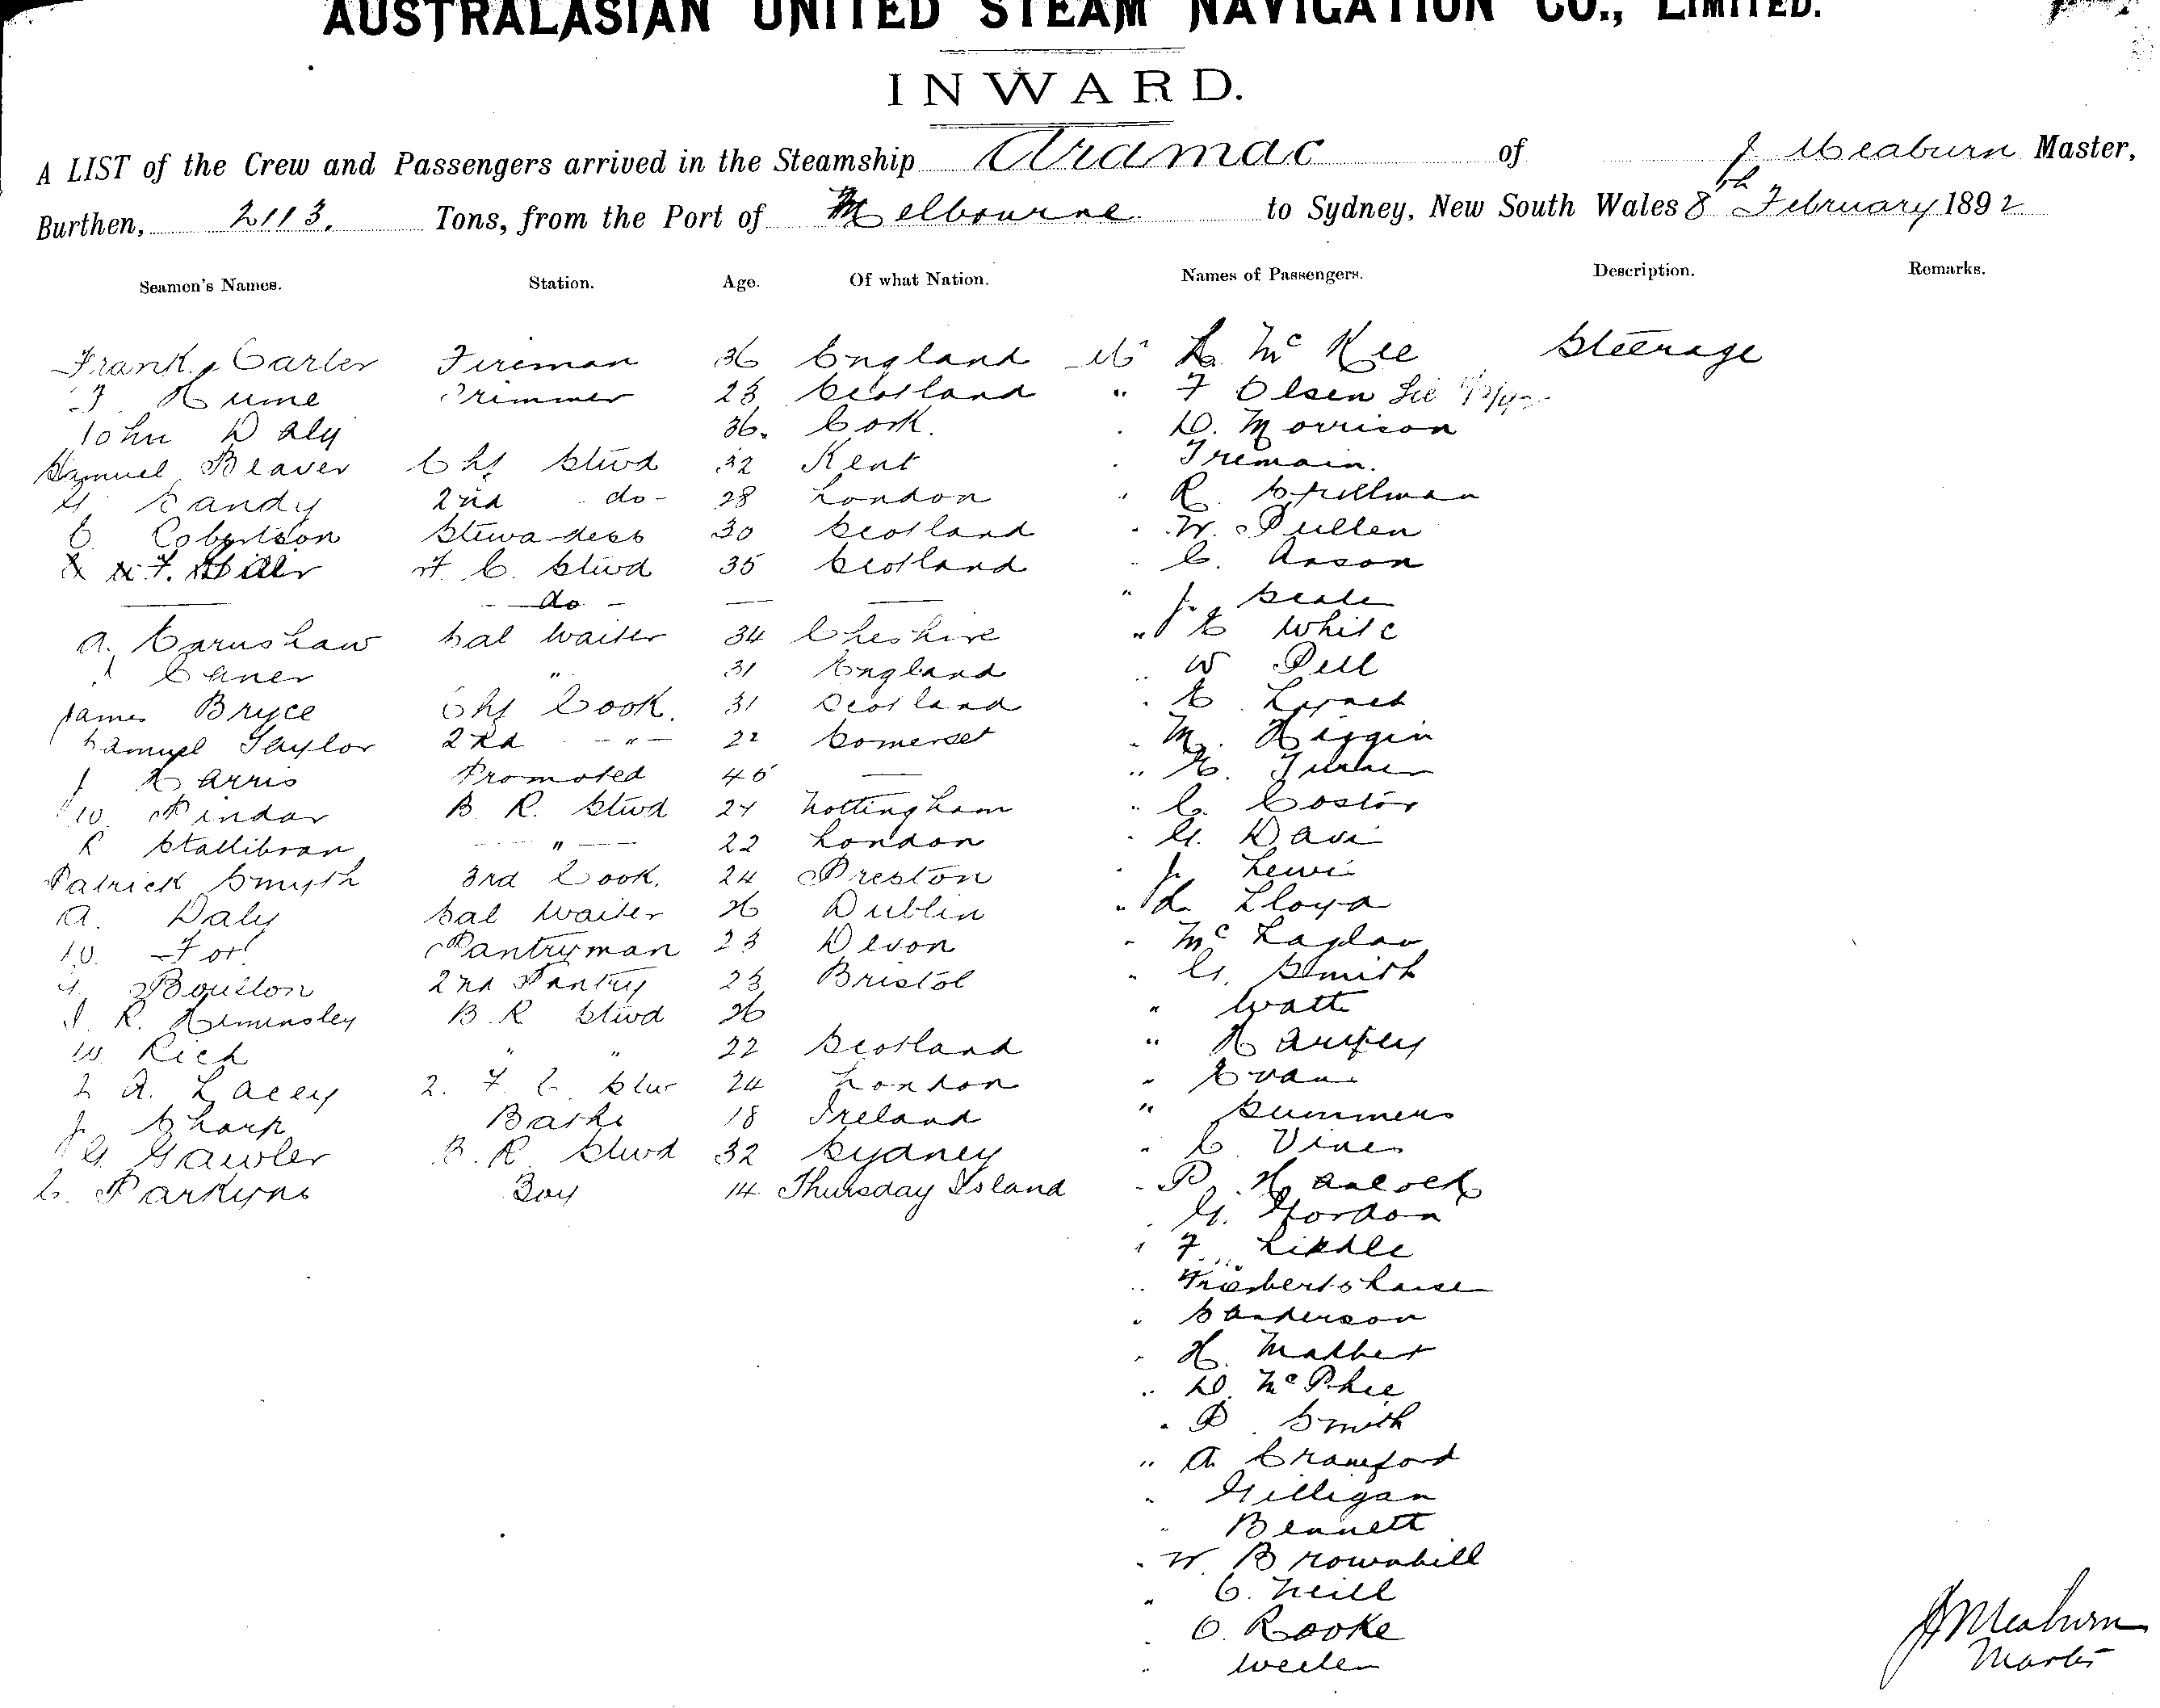 AUSTRALASIAN UNITED STEAM NAVIGATION CO., LIMITED.
INWARD.
A LIST of the Crew and Passengers arrived in the Steamship Aramac of J Meaburn Master,
Burthen, 2113. Tons, from the Port of Melbourne to Sydney, New South Wales 8th February 1892
Seamen's Names. Station. Age. Of what Nation. Names of Passengers. Description. Remarks.
Frank Carter Fireman 36 England Mr L. Mc Kee Steerage
J. Hume Trimmer 23 Scotland " F Olsen
John Daly 36. Cork. D. Morrison
Samuel Beaver Chf Stwd 32 Kent Tremain.
Candy 2nd do - 28 London " R Spillman
C. Robertson Stewardess 30 Scotland " W. Pullen
F. C. Stwd 35 Scotland " C. Anson
— do — — — " J. Seale
A. Carnshaw Sal Waiter 34 Cheshire " E White
" 31 England " W Pell
James Bryce Chf Cook. 31 Scotland " E Lynch
Samuel Taylor 2nd - " - 22 Somerset " M. Higgin
J Harris Promoted 45 — " E. Turner
W. Pindar B. R. Stwd 24 Nottingham " C. Costor
R Stallibran " 22 London " G. Davi
Patrick Smyth 3rd Cook. 24 Preston " J. Lewi
A. Daly Sal Waiter 26 Dublin " L. Lloyd
W. Pantryman 23 Devon " Mc Laglan
Boulton 2nd Pantry 23 Bristol " G. Smith
J. R. Hemensley B. R Stwd 26 " Watt
W. Rich " " 22 Scotland " Haupey
L A. Lacey 2. F. C. Stw 24 London " Evans
J. Sharp Baths 18 Ireland " Summers
G Gawler B. R Stwd 32 Sydney " C. Vines
C. Parkyns Boy 14 Thursday Island " P. Hancock
" G. Gordon
" F. Liddle
"
" Sanderson
" H. Mather
" D. Mc Phee
" P. Smith
" A. Crawford
" Gilligan
" Bennett
" W. Brownbill
" C. Neill
" O. Rooke
"
J Meaburn
Master